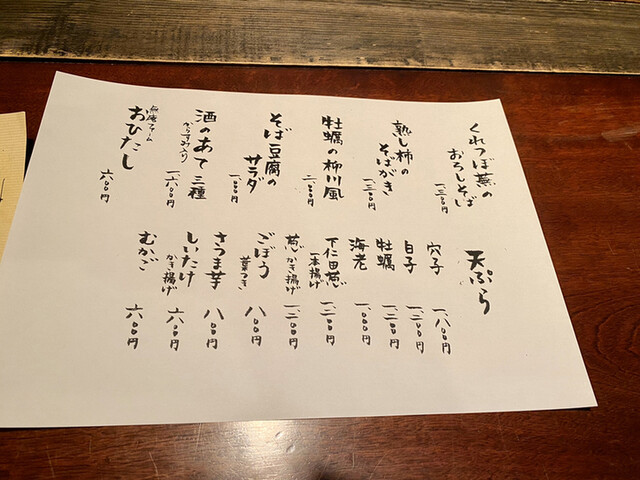 くれつぼ蕪の
おろしそば
一、三〇〇円
熟し柿の
そばがき
一、三〇〇円
牡蠣の柳川風
二、〇〇〇円
そば豆腐の
サラダ
一、〇〇〇円
酒のあて三種
からすみ入り
一、六〇〇円
おひたし
六〇〇円
天ぷら
穴子
一、八〇〇円
白子
一、二〇〇円
牡蠣
一、二〇〇円
海老
一、〇〇〇円
下仁田葱
一本揚げ
一、二〇〇円
葱かき揚げ
一、二〇〇円
ごぼう
葉つき
八〇〇円
さつま芋
八〇〇円
しいたけ
かき揚げ
六〇〇円
むかご
六〇〇円